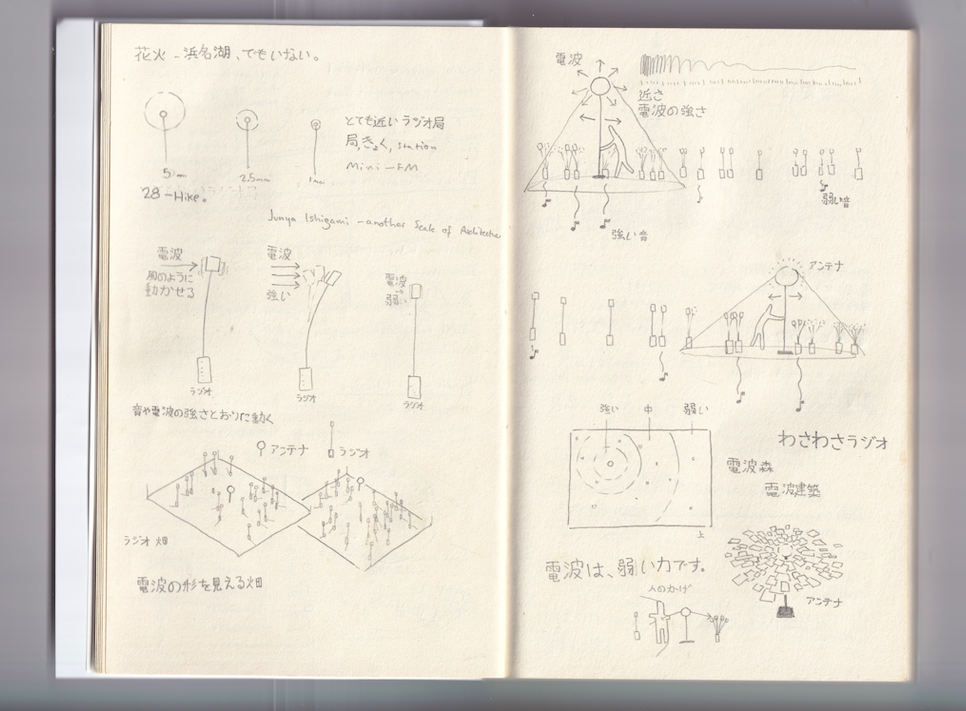 花火 - 浜名湖、でもいない。
とても近いラジオ局
局,きょく, station
Mini-FM
5mm
2.5mm
1mm
28-Hike。
Junya Ishigami - another Scale of Architecture
電波
風のように
動かせる
ラジオ
電波
強い
ラジオ
電波
弱い
ラジオ
音や電波の強さとおりに動く
アンテナ
ラジオ
ラジオ畑
電波の形を見える畑
電波
近さ
電波の強さ
弱い音
強い音
アンテナ
強い
中
弱い
上
わさわさラジオ
電波森
電波建築
電波は、弱い力です。
人のかげ
アンテナ